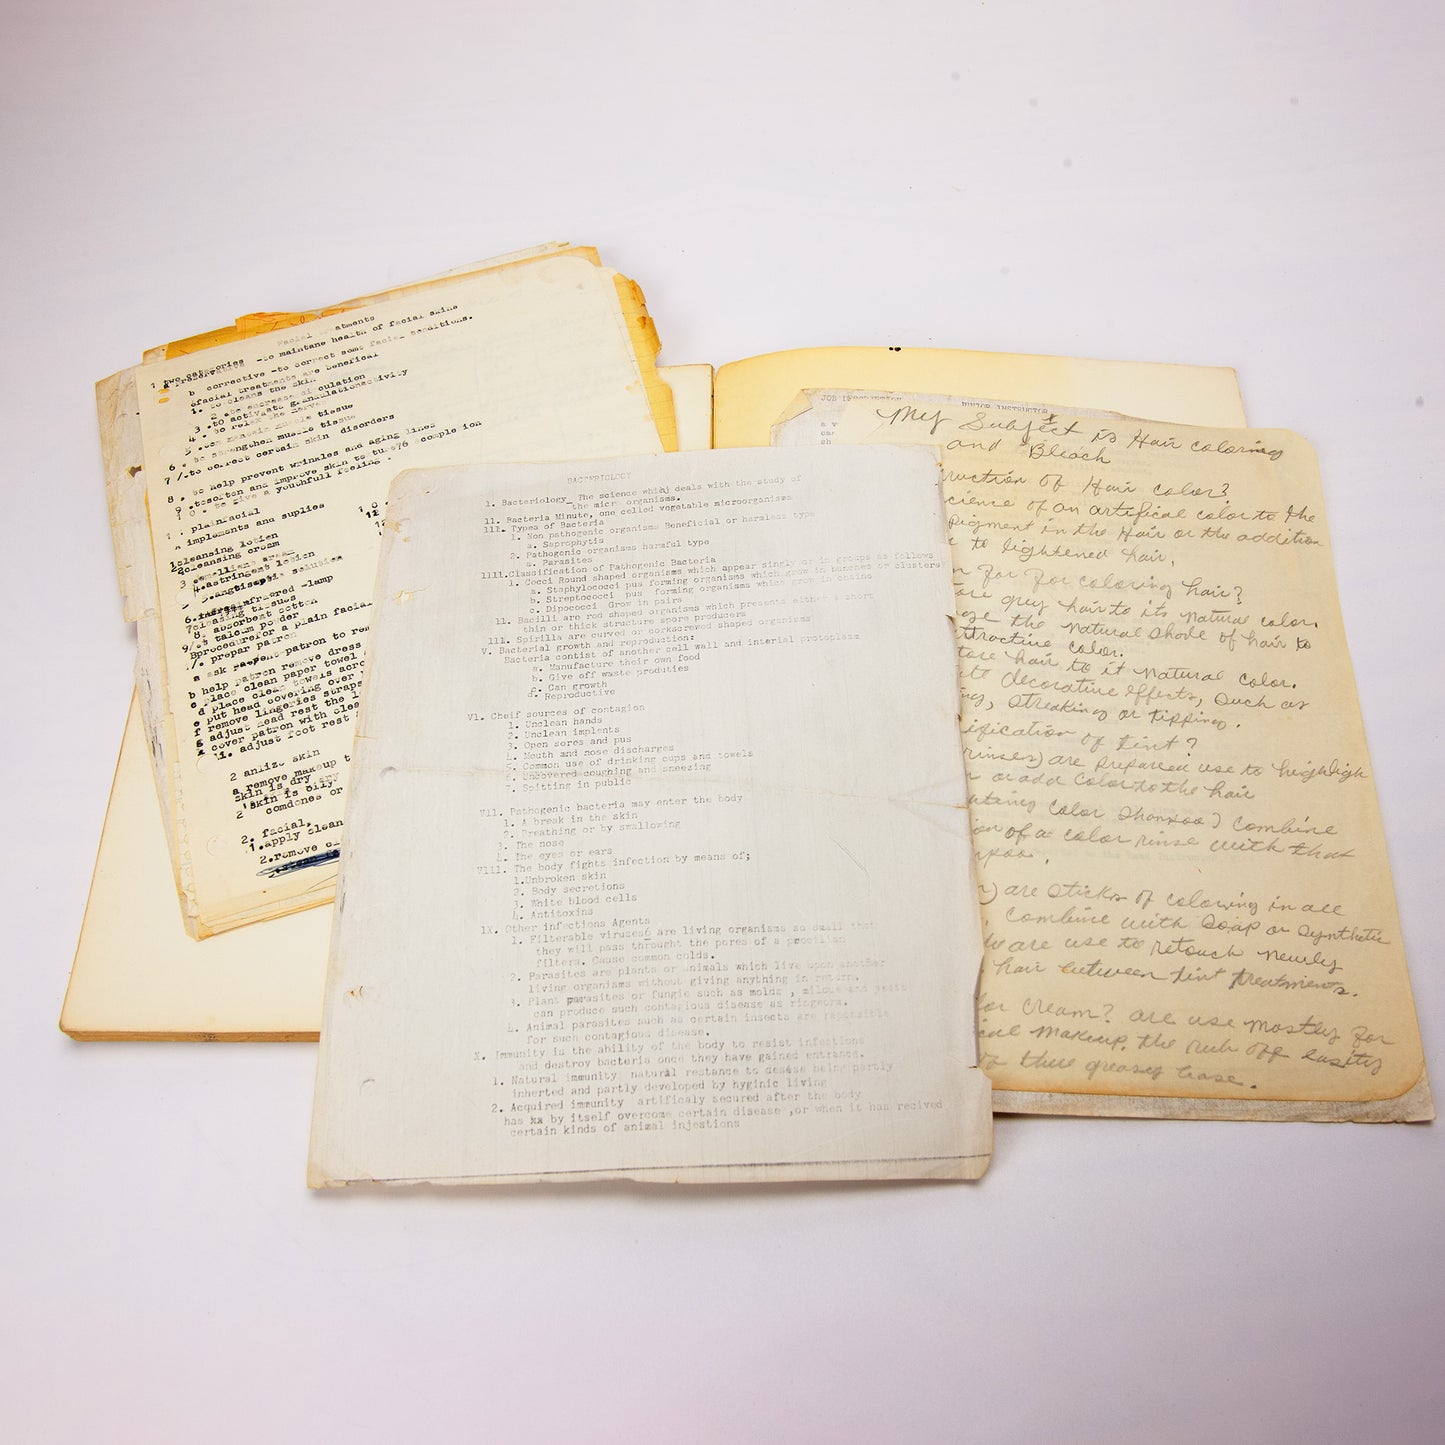 Facial treatments
1 two catagories -to maintane health of facial skins
a preservative
b corrective -to correct some facial conditions.
6facial treatments are benefical
1. to cleans the skin
2 .to encrease circulation
3 .to activaate granulationactivity
4 . to relax the nerves
5 .ton mantain muscle tissue
6 . to strengthen muscle tissue
7 /.to correct certain skin disorders
8 . to help prevent wrinkles and aging lines
9 .tosoften and improve skin to ture76 comple ion
1 0 . to give a youthfull feeling .
1 . plainfacial
a implements and suplies
1cleansing lotion
2cleansing cream
3 .emollians cream
4.astringent lotion
5 .angtiseptic solution
6.infrared -lamp
7cleasing tissues
8. absorbent cotton
9/.5 talcum powder
Bprocedurefor a plain facial
1/. prepar patron
a ask patron to rem
b help patron remove dress
c place clean paper towel
d place clean towels acros
e put head covering over
f remove lingeries straps
g adjust head rest the l
h cover patron with clea
i. adjust foot rest
2 anlize skin
a remove makeup t
skin is dry
skin is oily
2 comdones or
2. facial,
1.apply clean
2.remove cl
BACTERIOLOGY
1. Bacteriology_ The science which deals with the study of
the micr organisms.
11. Bacteria Minute, one celled vegetable microorganisms
111. Types of Bacteria
1. Non pathogenic organisms Beneficial or harmless type
a. Saprophytis
2. Pathogenic organisms harmful type
a. Parasites
1111.Classification of Pathogenic Bacteria
1. Cocci Round shaped organisms which appear singly or in groups as follows
a. Staphylococci pus forming organisms which grow in bunches or clusters
b. Streptococci pus forming organisms which grow in chains
c. Dipococci Grow in pairs
11. Bacilli are rod shaped organisms which presents either a short
thin or thick structure spore producers
111. Spirilla are curved or corkscrewed shaped organisms
V. Bacterial growth and reproduction:
Bacteria contist of another cell wall and interial protoplasm
a. Manufacture their own food
b. Give off waste produties
c. Can growth
d. Reproductive
V1. Cheif sources of contagion
1. Unclean hands
2. Unclean implants
3. Open sores and pus
4. Mouth and nose discharges
5. Common use of drinking cups and towels
6. Uncovered coughing and sneezing
7. Spitting in public
V11. Pathogenic bacteria may enter the body
1. A break in the skin
2. Breathing or by swallowing
3. The nose
4. The eyes or ears
V111. The body fights infection by means of;
1.Unbroken skin
2. Body secretions
3. White blood cells
4. Antitoxins
1X. Other infections Agents
1. Filterable viruses6 are living organisms so small that
they will pass throught the pores of a procilian
filters. Cause common colds.
2. Parasites are plants or animals which live upon another
living organisms without giving anything in return.
3. Plant parasites or fungie such as molds , milous and yeats
can produce such contagious disease as ringworm.
4. Animal parasites such as certain insects are raponsible
for such contagious disease.
X. Immunity is the ability of the body to resist infections
and destroy bacteria once they have gained entrance.
1. Natural immunity natural restance to desese being partly
inherted and partly developed by hyginic living
2. Acquired immunity artificaly secured after the body
has xx by itself overcome certain disease ,or when it has recived
certain kinds of animal injestions
JOB DESCRIPTION JUNIOR INSTRUCTOR
My Subject is Hair coloring
and Bleach
ruction of Hair color?
cience of an artifical color to the
pigment in the Hair or the addition
to lightened hair.
n for for coloring hair?
ore grey hair to its natural color.
nge the natural shade of hair to
ttractive color.
tore hair to it natural color.
ate decorative effects, such as
ing, streaking or tipping.
ification of tint?
rinses) are prepared use to highligh
or add color to the hair
ating color shampoo) combine
ion of a color rinse with that
mpoo.
n) are sticks of coloring in all
, combine with soap or synthetic
w are use to retouch newly
hair between tint treatments.
lor cream? are use mostly for
ical makeup. the rub off easity
there greasy base.